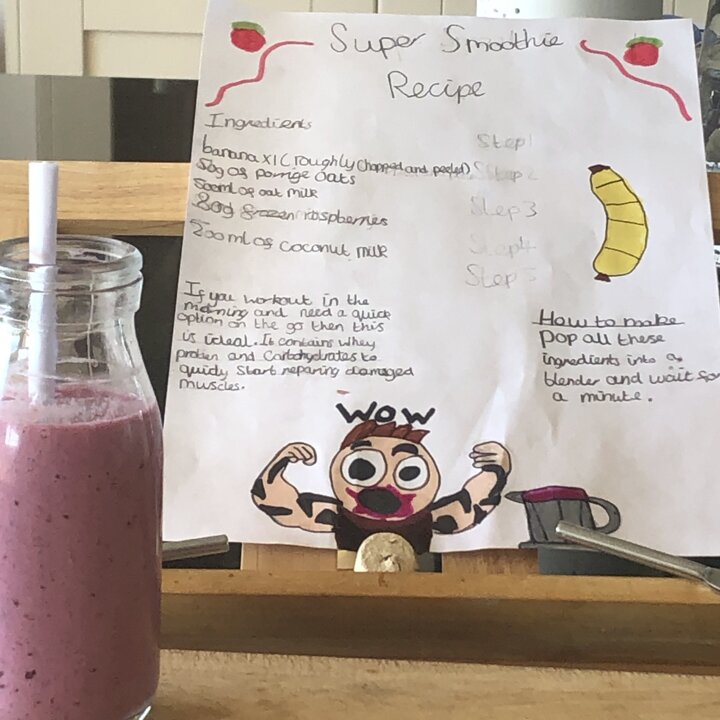 Super Smoothie
Recipe
Ingredients
banana x1 (roughly chopped and peeled)
50g of porrige oats
500ml of oat milk
80g frozen raspberries
200ml of coconut milk
Step 1
Step 2
Step 3
Step 4
Step 5
If you workout in the
morning and need a quick
option on the go then this
is ideal. It contains whey
protien and Carbohydrates to
quicly start reparing damaged
muscles.
How to make
Pop all these
ingredients into a
blender and wait for
a minute.
WOW